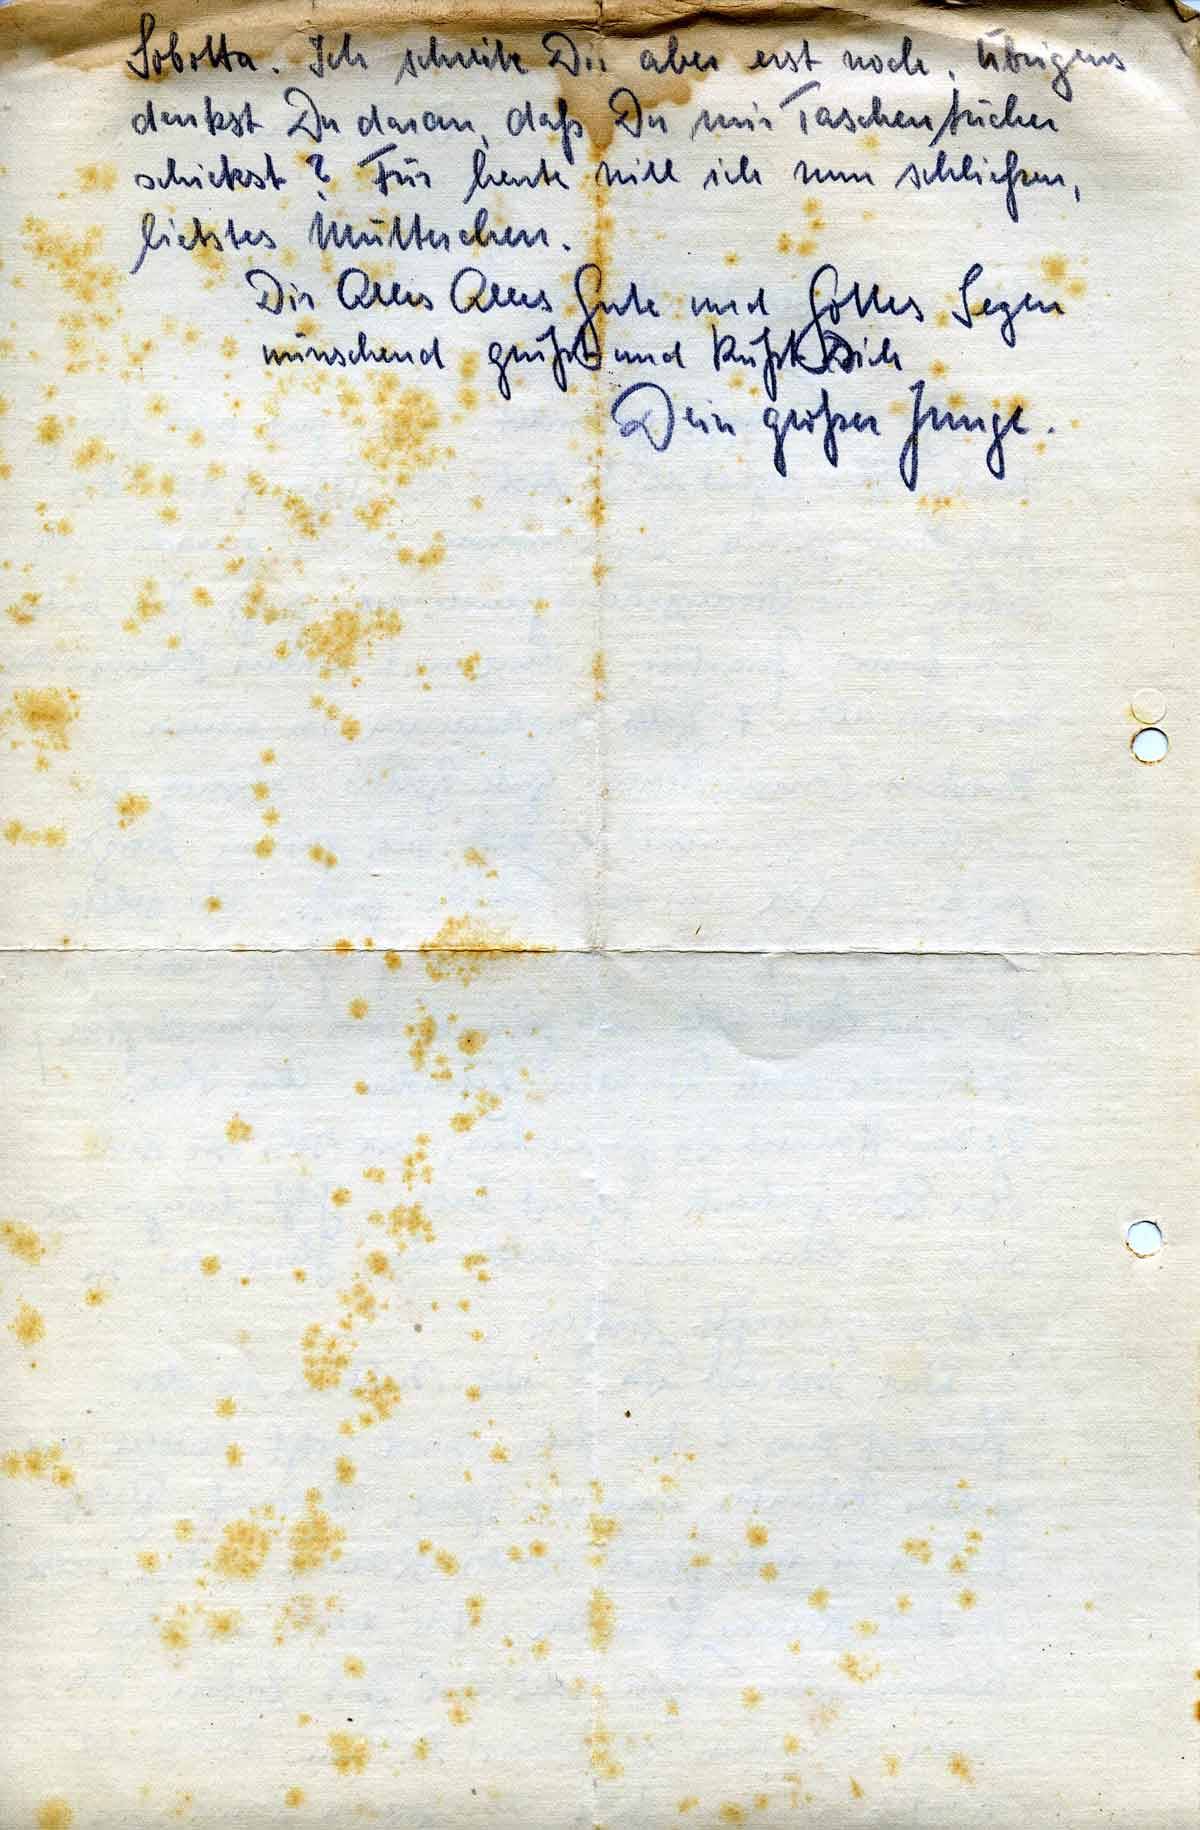 Sobotta. Ich schreibe Dir aber erst noch. Übrigens
denkst Du daran, daß Du mir Taschentücher
schickst? Für heute will ich nun schließen,
liebstes Mütterchen.
Dir Alles Alles Gute und Gottes Segen
wünschend grüßt und küßt Dich
Dein großer Junge.